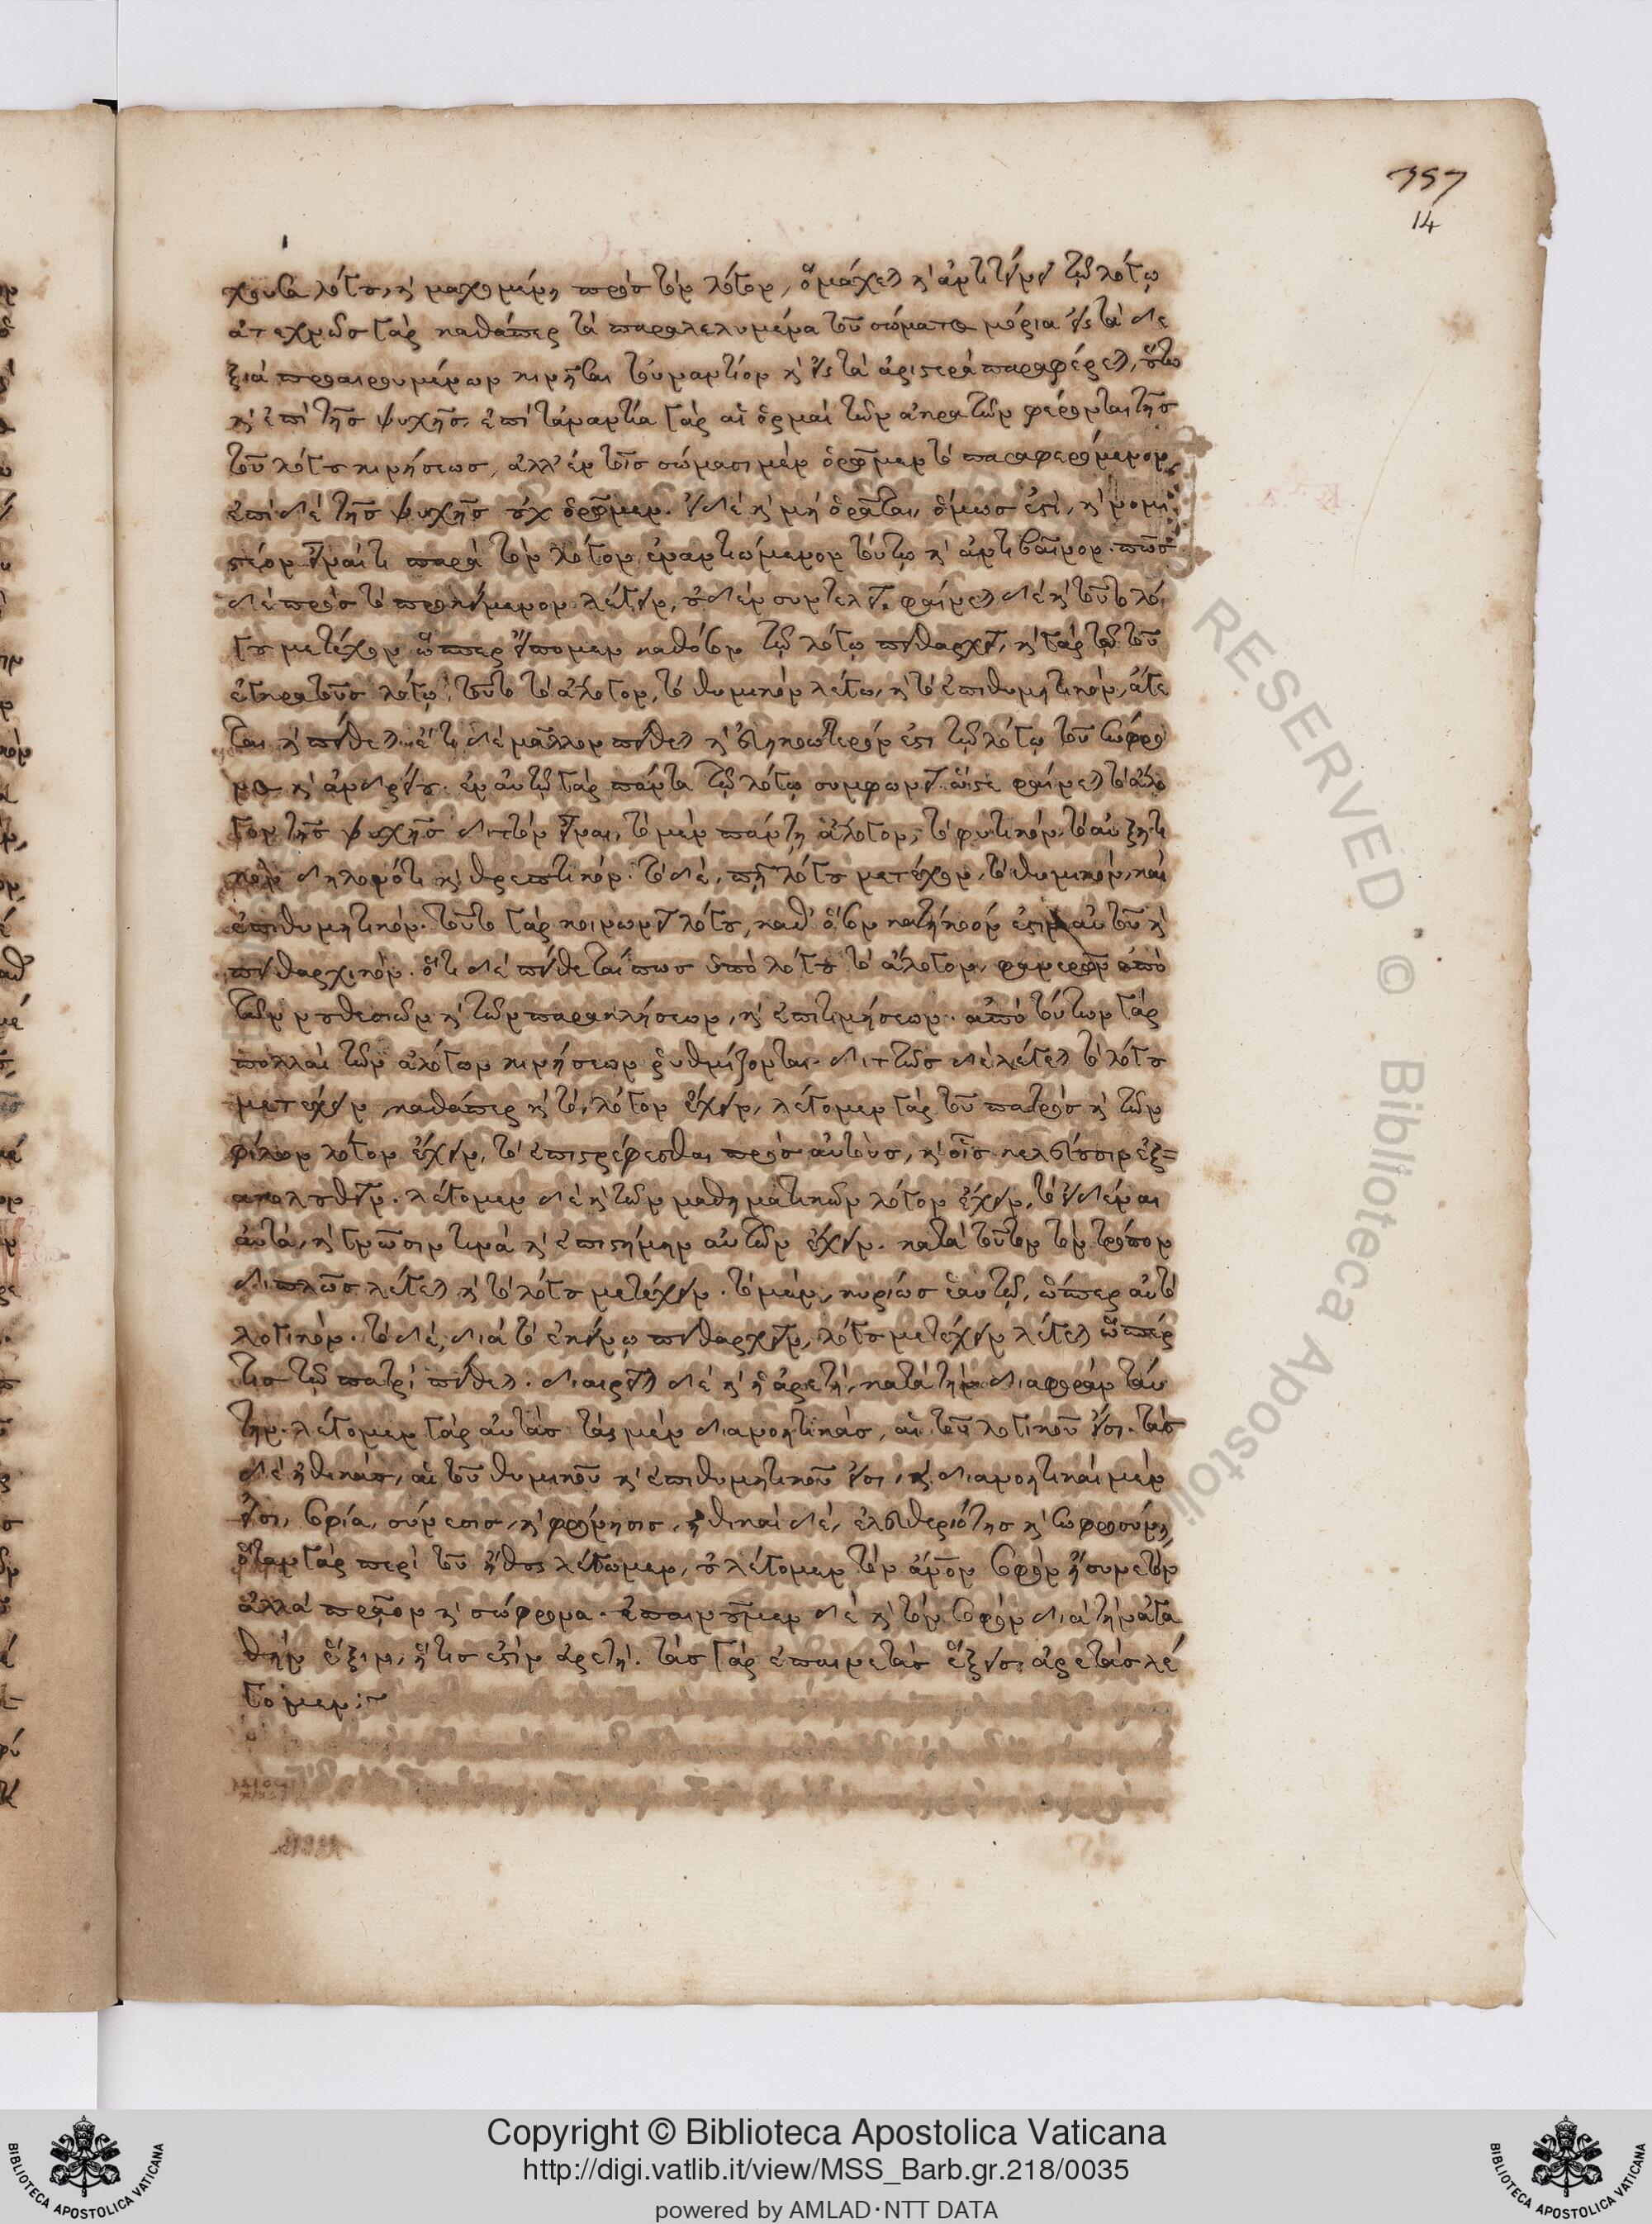 357
14
χουσα λόγου, κ' μαχομένη πρὸς τὸν λόγον, ὃ μάχεται κ' ἀντιτείνει τῷ λόγῳ
ἀτεχνῶς γὰρ καθάπερ τὰ παραλελυμένα τοῦ σώματος μόρια εἰς τὰ δε
ξιὰ προαιρουμένων κινῆσαι τοὐναντίον κ' εἰς τὰ ἀριστερὰ παραφέρεται, οὕτω
κ' ἐπὶ τῆς ψυχῆς. ἐπὶ τἀναντία γὰρ αἱ ὁρμαὶ τῶν ἀκρατῶν φέρονται τῆς
τοῦ λόγου κινήσεως, ἀλλ' ἐν τοῖς σώμασι μὲν ὁρῶμεν τὸ παραφερόμενον,
ἐπὶ δὲ τῆς ψυχῆς οὐχ ὁρῶμεν. εἰ δὲ κ' μὴ ὁρᾶται, ὅμως ἐστὶ, κ' νομι
στέον εἶναί τι παρὰ τὸν λόγον ἐναντιώμενον τούτῳ κ' ἀντιβαῖνον. πῶς
δὲ πρὸς τὸ προκείμενον λέγειν, οὐδὲν συντελεῖ. φαίνεται δὲ κ' τοῦτο λό
γου μετέχον ὥσπερ εἴπομεν καθόσον τῷ λόγῳ πειθαρχεῖ, κ' γὰρ τῷ τοῦ
ἐγκρατοῦς λόγῳ, τοῦτο τὸ ἄλογον, τὸ θυμικὸν λέγω, κ' τὸ ἐπιθυμητικὸν, ἄγε
ται κ' πείθεται. ἔτι δὲ μᾶλλον πείθεται κ' εὐηκοώτερόν ἐστι τῷ λόγῳ τοῦ σώφρο
νος κ' ἀνδρείου. ἐν αὐτῷ γὰρ πάντα τῷ λόγῳ συμφωνεῖ. ὥστε φαίνεται τὸ ἄλο
γον τῆς ψυχῆς διττὸν εἶναι, τὸ μὲν πάντῃ ἄλογον, τὸ φυτικὸν, τὸ αὐξητι
κὸν δηλονότι κ' θρεπτικόν. τὸ δὲ, πῆ λόγου μετέχον, τὸ θυμικὸν, καὶ
ἐπιθυμητικόν. τοῦτο γὰρ κοινωνεῖ λόγου, καθ' ὅσον κατήκοόν ἐστιν αὐτοῦ κ'
πειθαρχικόν. ὅτι δὲ πείθεταί πως ὑπὸ λόγου τὸ ἄλογον, φανερὸν ἀπὸ
τῶν νουθεσιῶν κ' τῶν παρακλήσεων, κ' ἐπιτιμήσεων. ἀπὸ τούτων γὰρ
πολλαὶ τῶν ἀλόγων κινήσεων ῥυθμίζονται. διττῶς δὲ λέγεται τὸ λόγου
μετέχειν, καθάπερ κ' τὸ, λόγον ἔχειν, λέγομεν γὰρ τοῦ πατρὸς κ' τῶν
φίλων λόγον ἔχειν, τὸ ἐπιστρέφεσθαι πρὸς αὐτοὺς, κ' οἷς κελεύουσιν ἐξ=
ακολουθεῖν. λέγομεν δὲ κ' τῶν μαθηματικῶν λόγον ἔχειν, τὸ εἰδέναι
αὐτὰ, κ' γνῶσίν τινα κ' ἐπιστήμην αὐτῶν ἔχειν. κατὰ τοῦτον τὸν τρόπον
διπλῶς λέγεται κ' τὸ λόγου μετέχειν. τὸ μὲν, κυρίως ἑαυτῷ, ὥσπερ αὐτὸ
λογικόν. τὸ δὲ, διὰ τὸ ἐκείνῳ πειθαρχεῖν, λόγου μετέχειν λέγεται ὥσπέρ
τις τῷ πατρὶ πείθεται. διαιρεῖται δὲ κ' ἡ ἀρετὴ, κατὰ τὴν διαφορὰν ταύ
την. λέγομεν γὰρ αὐτὰς τὰς μὲν διανοητικὰς, αἳ τοῦ λογικοῦ εἰσι. τὰς
δὲ ἠθικὰς, αἳ τοῦ θυμικοῦ κ' ἐπιθυμητικοῦ εἰσι, κ' διανοητικαὶ μὲν
εἰσι, σοφία, σύνεσις, κ' φρόνησις, ἠθικαὶ δὲ, ἐλευθεριότης κ' σωφροσύνη,
ὅταν γὰρ περὶ τοῦ ἤθους λέγωμεν, οὐ λέγομεν τὸν ἄνθρωπον σοφὸν ἢ συνετὸν
ἀλλὰ πρᾶον κ' σώφρονα. ἐπαινοῦμεν δὲ κ' τὸν σοφὸν διὰ τὴν ἀγα
θὴν ἕξιν, ἥτις ἐστὶν ἀρετή. τὰς γὰρ ἐπαινετὰς ἕξεις, ἀρετὰς λέ
γομεν:~
RESERVED © Biblioteca Apostolic
Copyright © Biblioteca Apostolica Vaticana
http://digi.vatlib.it/view/MSS_Barb.gr.218/0035
powered by AMLAD·NTT DATA
BIBLIOTECA APOSTOLICA VATICANA
BIBLIOTECA APOSTOLICA VATICANA